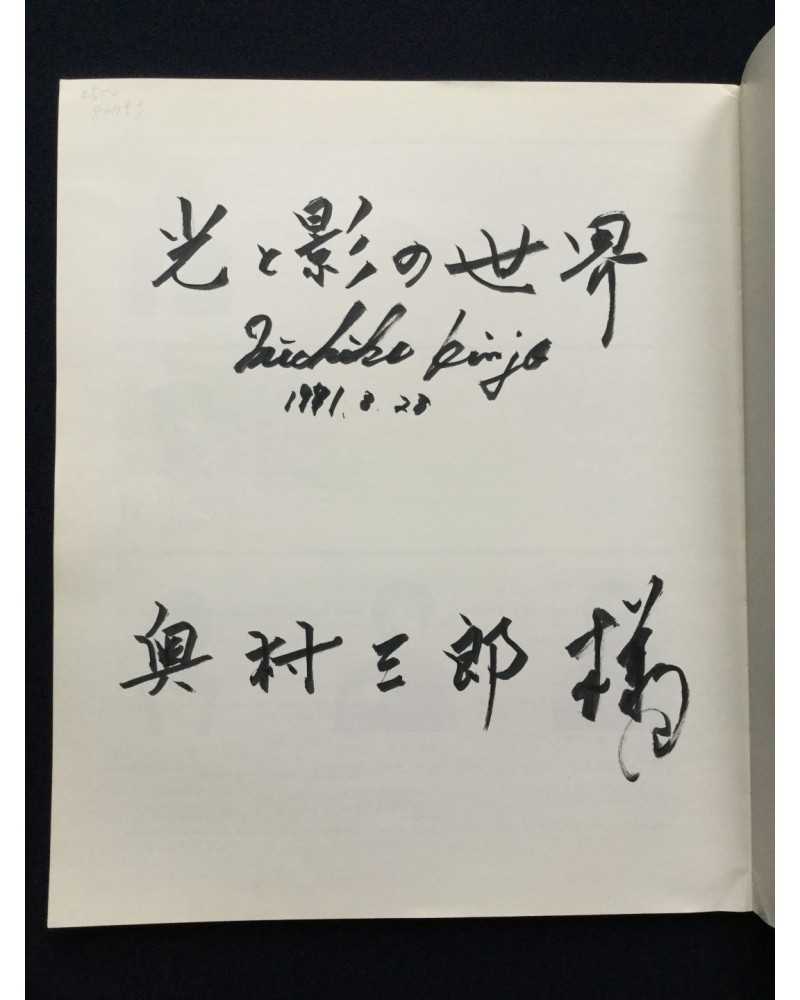 光と影の世界
Michiko Kinjo
1981.8.28
奥村三郎様